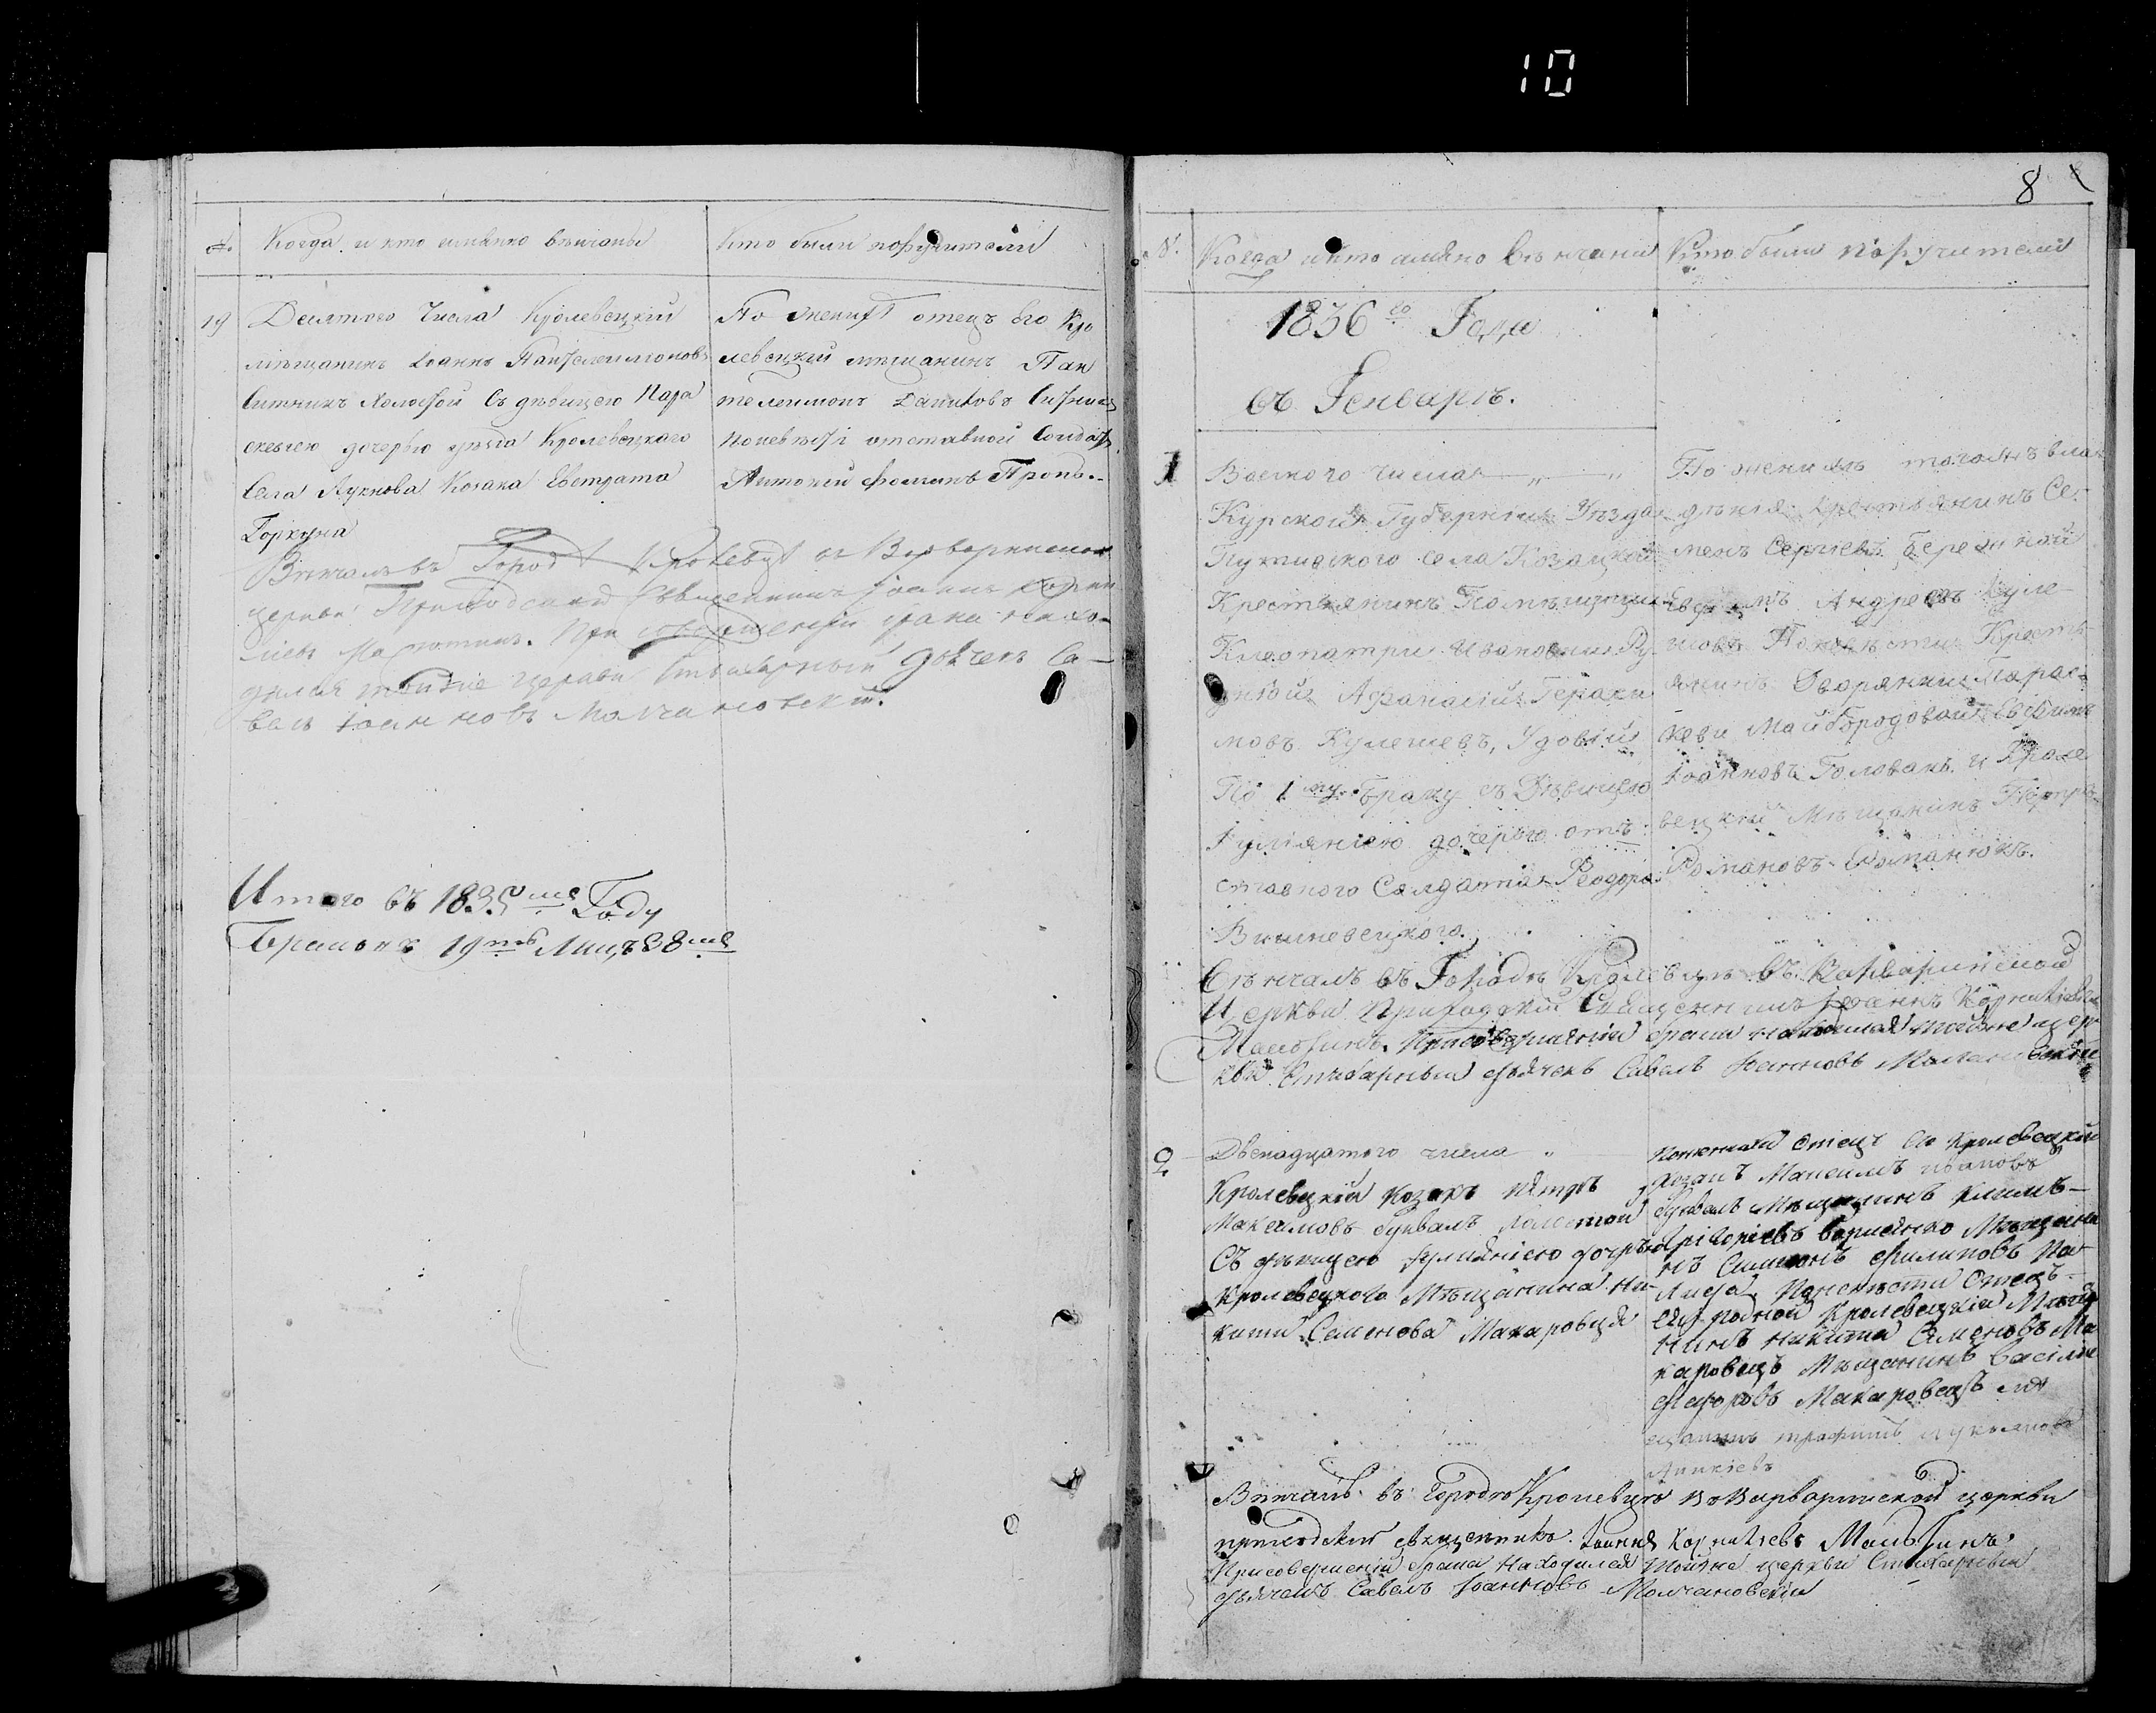 10
№. Когда и кто имянно венчаны
Кто были поручители
19 Десятого Числа Кролевецкий
мещанинъ Іоаннъ Пантелеимоновъ
Ситникъ Холостой Съ девицею Пара
скевіею дочерью уезда Кролевецкаго
Села Лукнова Козака Евстрата
Горкуна
По женихе отецъ его Кро
левецкий мещанинъ Пан
телеимонъ Даниловъ Ситникъ
по невесте отставной Солдатъ
Антоній Фоминъ
Венчалъ въ Городе Кролевце въ Варваринской
церкви Приходский Священникъ Іоаннъ Корни
ліевъ. При совершеніи брака нахо-
дился тойже церкви Стихарный дячекъ Са-
велъ Іоанновъ Молчановскій.
Итого въ 1835мъ Году
Браковъ 19ть Лицъ 38мъ
8
№. Когда и кто имяно венчани
Кто были поручители
1836го Года
въ Генваре.
1 Восмого числа
Курской Губерніи Уезда
Путивского села Козацкой
Крестьянинъ Помещицы
Клеопатри Ивановни
Афанасій Гераси
мовъ Кулешевъ, Удовій
По 1му браку съ Девицею
Іуліяніею дочерью отъ
ставного Салдата Феодора
Вишневецкого.
По женихъ тогожъ вла
дения Крестьянинъ Се-
менъ Сергіевъ Березной
Андреевъ Куле
шовъ По невести Кресть
янинъ Дворянки Парас-
кеви Майбородовой Ефимъ
Іоанновъ Голованъ и Кроле
вецкій Мещанинъ
Романовъ Романюкъ.
Венчалъ въ Городе Кролевце въ Варваринской
Церкви Приходскій Священникъ Іоаннъ Корниліевъ
При совершеніи брака находился тойже цер
кви Стихарный дячекъ Савелъ Іоанновъ Молчановскій
2 Двенадцатого числа
Кролевецкій Козакъ Петръ
Максимовъ Буквалъ Холостой
Съ девицею Іуліяніею дочерью
Кролевецкого Мещанина Ни-
кити Семенова Макаровця
По женихи отецъ его Кролевецкій
Козакъ Максимъ Ивановъ
Буквалъ Мещанинъ Климъ
Григоріевъ Мещани
нъ Симеонъ Филиповъ
По невести отецъ
ея родной Кролевецкій Меща
нинъ Никита Семеновъ Ма
каровецъ Мещанинъ Василій
Федоровъ Макаровецъ Ме
щанинъ Трофимъ Лукьяновъ
Аникіевъ
Венчалъ въ Городе Кролевце въ Варваринской церкви
приходский священникъ Іоаннъ Корниліевъ
При совершеніи брака Находился Тойже церкви Стихарный
дячекъ Савелъ Іоанновъ Молчановскій